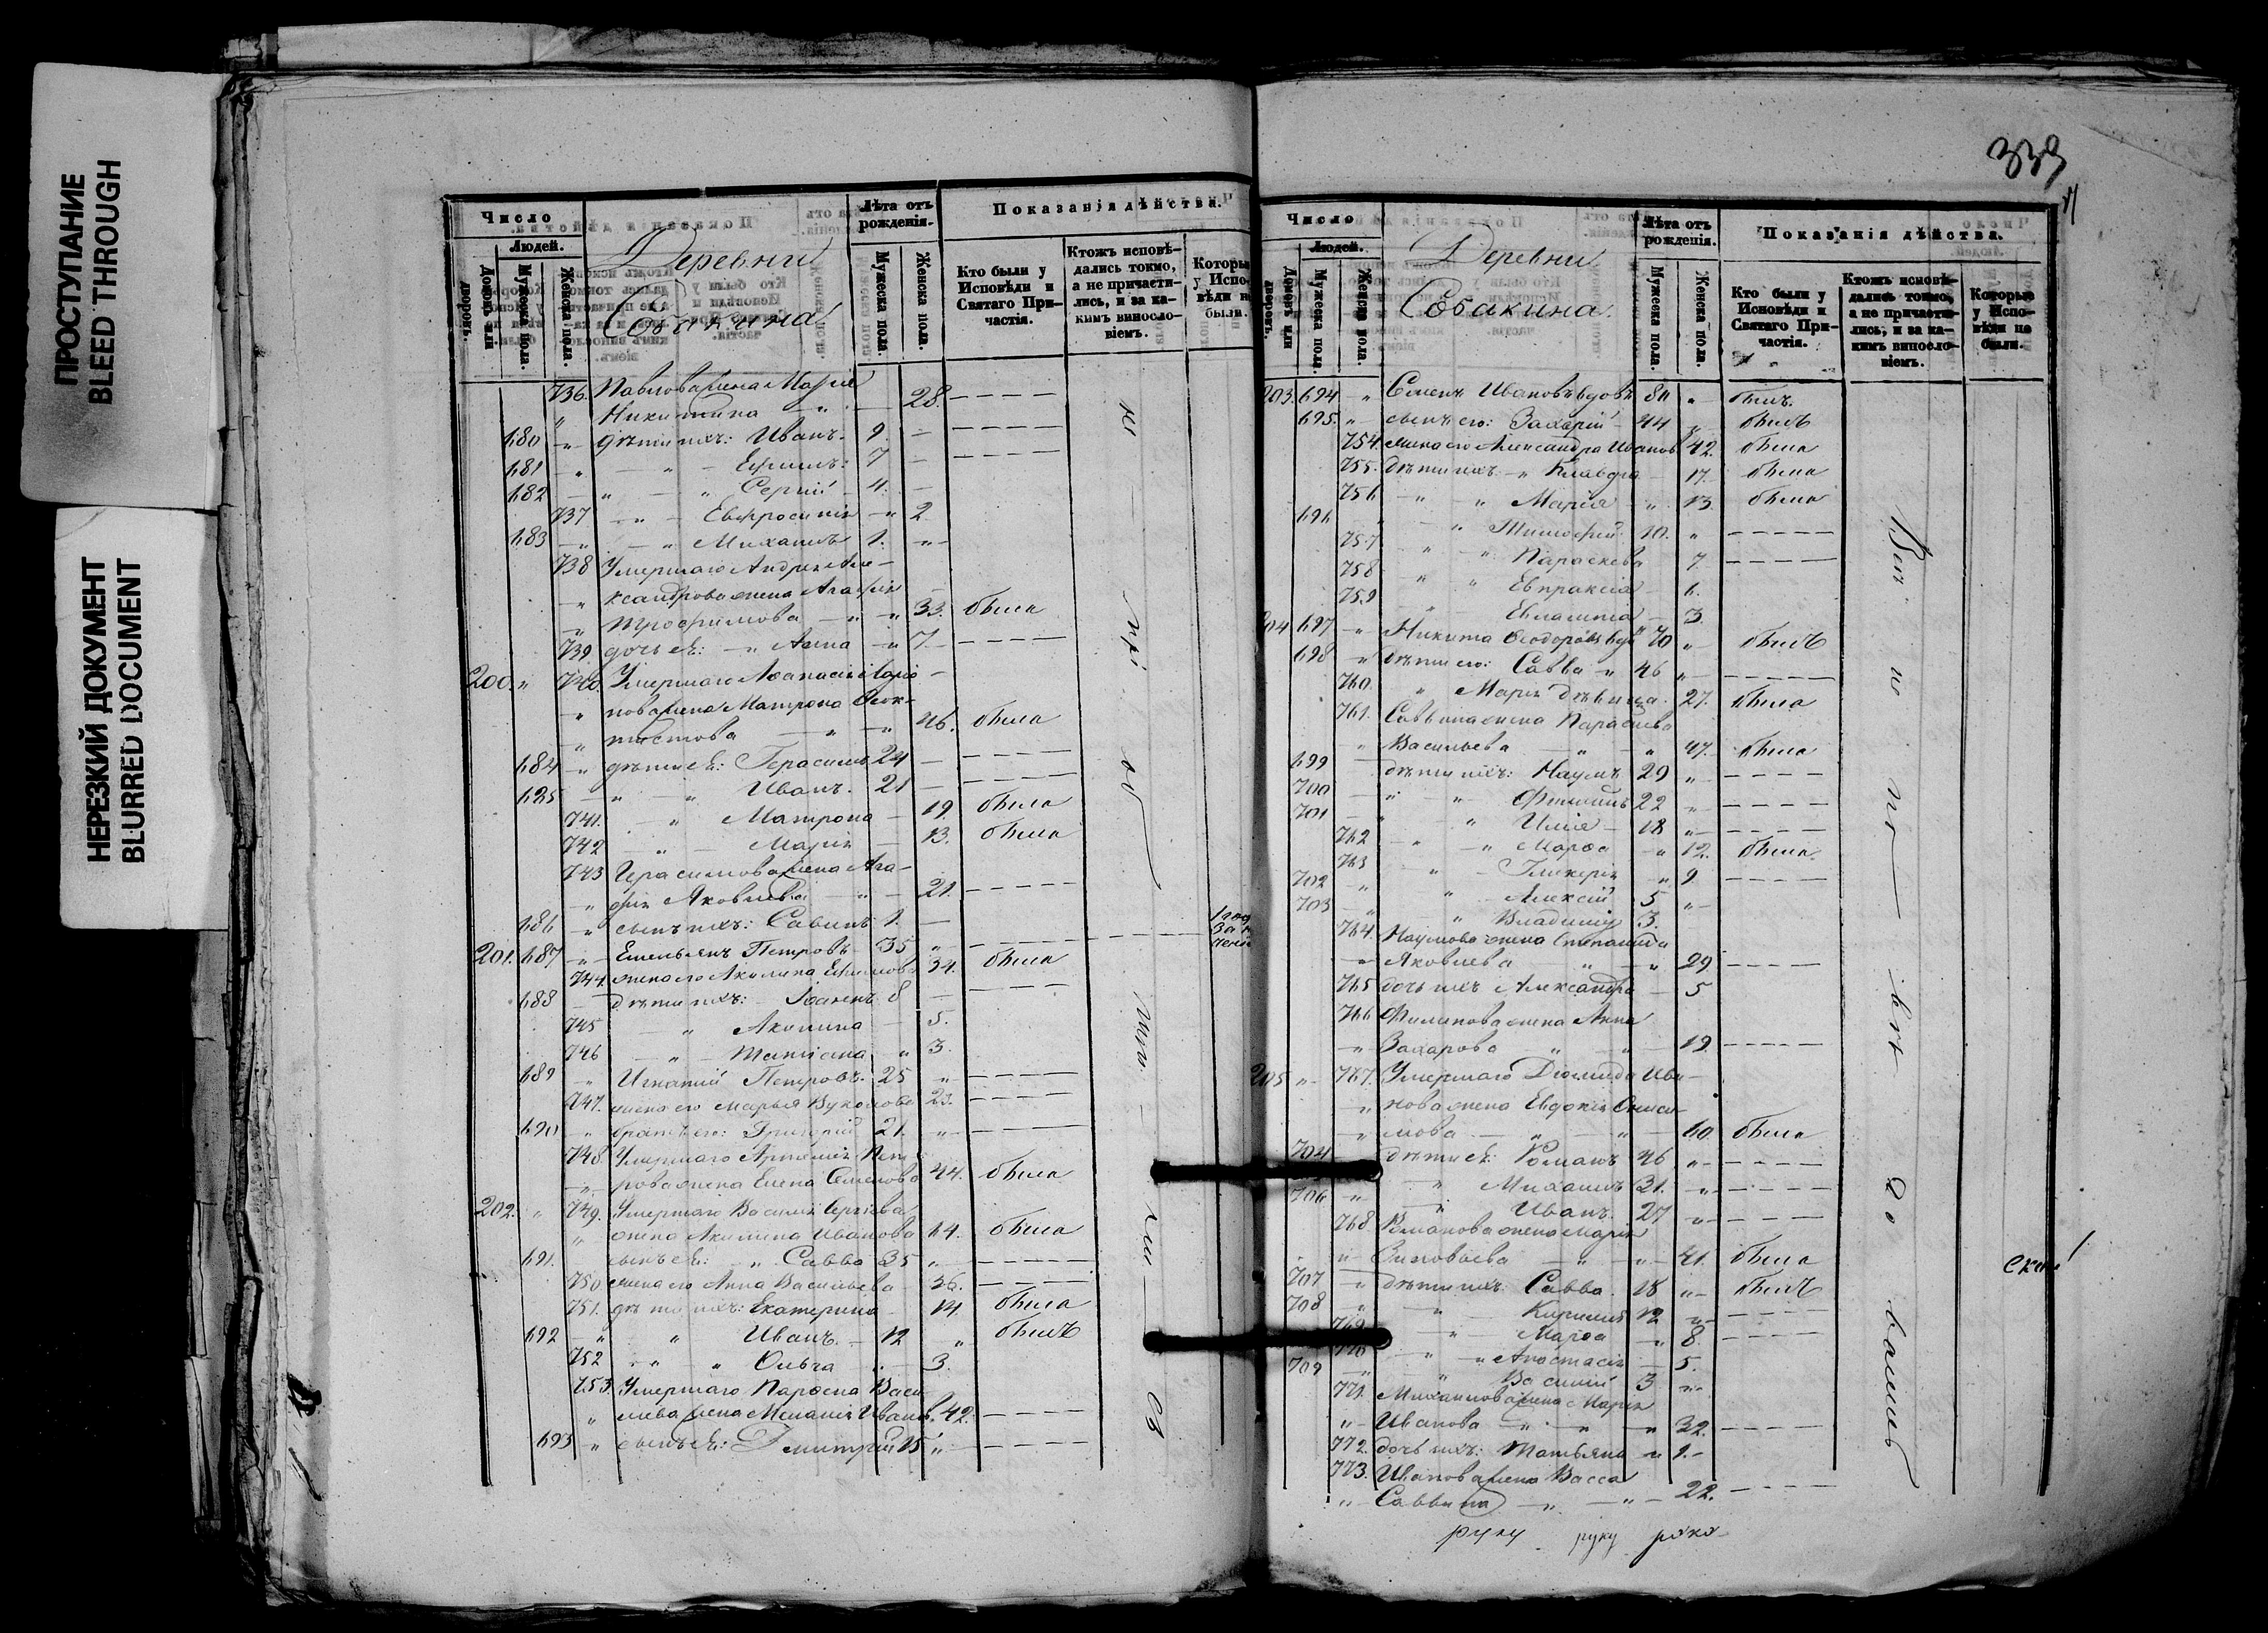 ПРОСТУПАНИЕ
BLEED THROUGH
НЕРЕЗКИЙ ДОКУМЕНТ
BLURRED DOCUMENT
Число
Людей.
Домовъ или дворовъ.
Мужеска пола.
Женска пола.
Деревни
Собакина
Лѣта отъ рожденія.
Мужеска пола.
Женска пола.
Показанія дѣйства.
Кто были у Исповѣди и Святаго Причастія.
Ктожъ исповѣдались токмо, а не причастились, и за какимъ винословіемъ.
Которые у Исповѣди не были.
736. Павлова жена Марія
" Никитина — " — 28. — — — —
680 — " дѣти ихъ: Иванъ. 9. — — — — —
681 " — " — Ефимъ: 7 — — — — —
682 — " — " Сергій — 4. —
737 — " — Евфросинія — " 2
683 — " — " Михаилъ 1. — " —
738 Умершаго Андрея Але-
" ксандрова жена Агафія
" Трофимова — " — " 33. была
739 дочь ея: — " Анна — " 7 — — — — —
200. " 740. Умершаго Аѳанасія Ларіо-
" нова жена Матрона Ѳеок-
" тистова — " — " 46. была
684 — " дѣти ея: Герасимъ 24 — — — — —
685 — " — " Иванъ. 21 — — — — —
741. " Матрона — 19. была
742 — " — Марія — 13. была
743 Герасимова жена Ага-
— " фія Яковлева — " — 21. — — — —
686 " сынъ ихъ: Савинъ 1. —
201. 687 — " — Емельянъ Петровъ — 35 " — — — — —
744. жена его Акилина Ефимова 34. была
688 — дѣти ихъ: — Іоаннъ 8 — — — — —
745 " Акилина — 5.
746 — " — Татіана " 3.
689 " Игнатий Петровъ. 25 " — — — — —
747. жена его Марья Вуколова 23. — — — —
690 " братъ его: Григорій 21. " — — — — —
748. Умершаго Артемія Пет-
" рова жена Елена Семенова 44. была
202. " 749. Умершаго Василія Сергѣева
" жена Акилина Иванова 64. была
691. сынъ ея: " Савва 35 " — — — — —
750 жена его Анна Васильева — 36. — — — —
751. дѣти ихъ: Екатерина — 14. была
692 — " " Иванъ. — 12 " былъ
752 " " Ольга " — 3.
753. Умершаго Парѳена Васи-
" льева жена Меланія Иванов. 42. — — — —
693 " сынъ ея: Димитрій 15 " — — — — —
339
Число
Людей.
Домовъ или дворовъ.
Мужеска пола.
Женска пола.
Деревни
Собакина.
Лѣта отъ рожденія.
Мужеска пола.
Женска пола.
Показанія дѣйства.
Кто были у Исповѣди и Святаго Причастія.
Ктожъ исповѣдались токмо, а не причастились, и за какимъ винословіемъ.
Которые у Исповѣди не были.
203. 694 — " Семенъ Ивановъ вдовъ 80 " — былъ.
695. " сынъ его: Захарій — 44 " былъ
754. жена его Александра Иванов. 42. была
755. дѣти ихъ — " Клавдія — 17. была
756 — " — " Марія — " 13. была
696 " — " Тимофей. 10. " — — — — —
757. — " — " Параскева 7 — — — —
758 — " " Евпраксія — 6.
759 — " Евлампія — 3.
204 697 — " Никита Ѳеодоровъ вдов. 70 " — былъ
698 — " дѣти его: Савва " 46 " — — — — —
760. " Марія дѣвица. 27. была
761. Саввина жена Параскева
— " Васильева — " — " 47. была
699 дѣти ихъ: Наумъ 29 " — — — — —
700 — " — " Филиппъ 22 " — — — — —
701 " — " Илія — 18 " — — — — —
762 — " — " Марѳа — " 12. была.
763 " — Гликерія " 9 — — — —
702 — " " Алексій 5 " —
703 — " " Владимір 3.
764. Наумова жена Степанида
— " Яковлева — " — " 29 — — — —
765 дочь ихъ Александра — 5
766 Филипова жена Анна
— " Захарова " " — 19. — — — —
205 " — 767. Умершаго Діомида Ива-
" нова жена Евдокія Ониси-
— " мова — " — " — 60 была
704 дѣти ея: Романъ 46 " — — — — —
" Михаилъ 31. " — — — — —
706 " " Иванъ. 27 " — — — —
768 Романова жена Марія
" — Зиновьева — " — " — 41. была
707 — " дѣти ихъ: Савва. 18 " — былъ
708 — " — " Кириллъ 12 " — — — — —
769 — " Марѳа " 8. — — — —
770 — " — " Анастасія — 5.
709 " " Василій 3 " —
771. Михаилова жена Марія
" — Иванова — " — " " 32. — — — —
772. дочь ихъ: Татьяна " 1. —
773. Иванова жена Васса
" — Саввина — " — " — 22. — — — —
руку руку